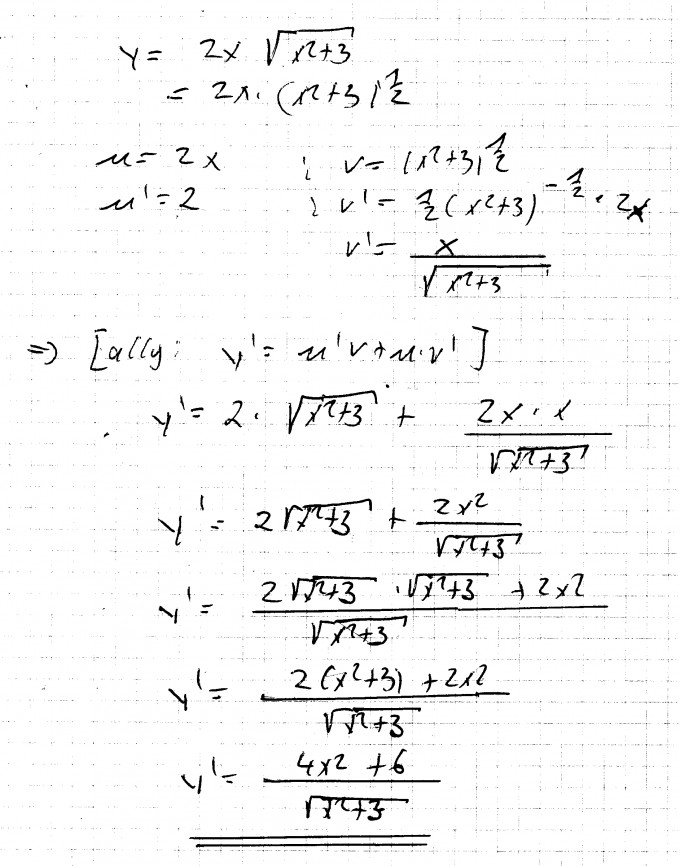 y = 2x √(x²+3)
= 2x · (x²+3)^½
u = 2x ; v = (x²+3)^½
u' = 2 ; v' = ½(x²+3)^-½ · 2x
v' = x / √(x²+3)
⇒ [allg: y' = u'v + u·v']
y' = 2 · √(x²+3) + 2x · x / √(x²+3)
y' = 2√(x²+3) + 2x² / √(x²+3)
y' = (2√(x²+3) · √(x²+3) + 2x²) / √(x²+3)
y' = (2(x²+3) + 2x²) / √(x²+3)
y' = (4x² + 6) / √(x²+3)